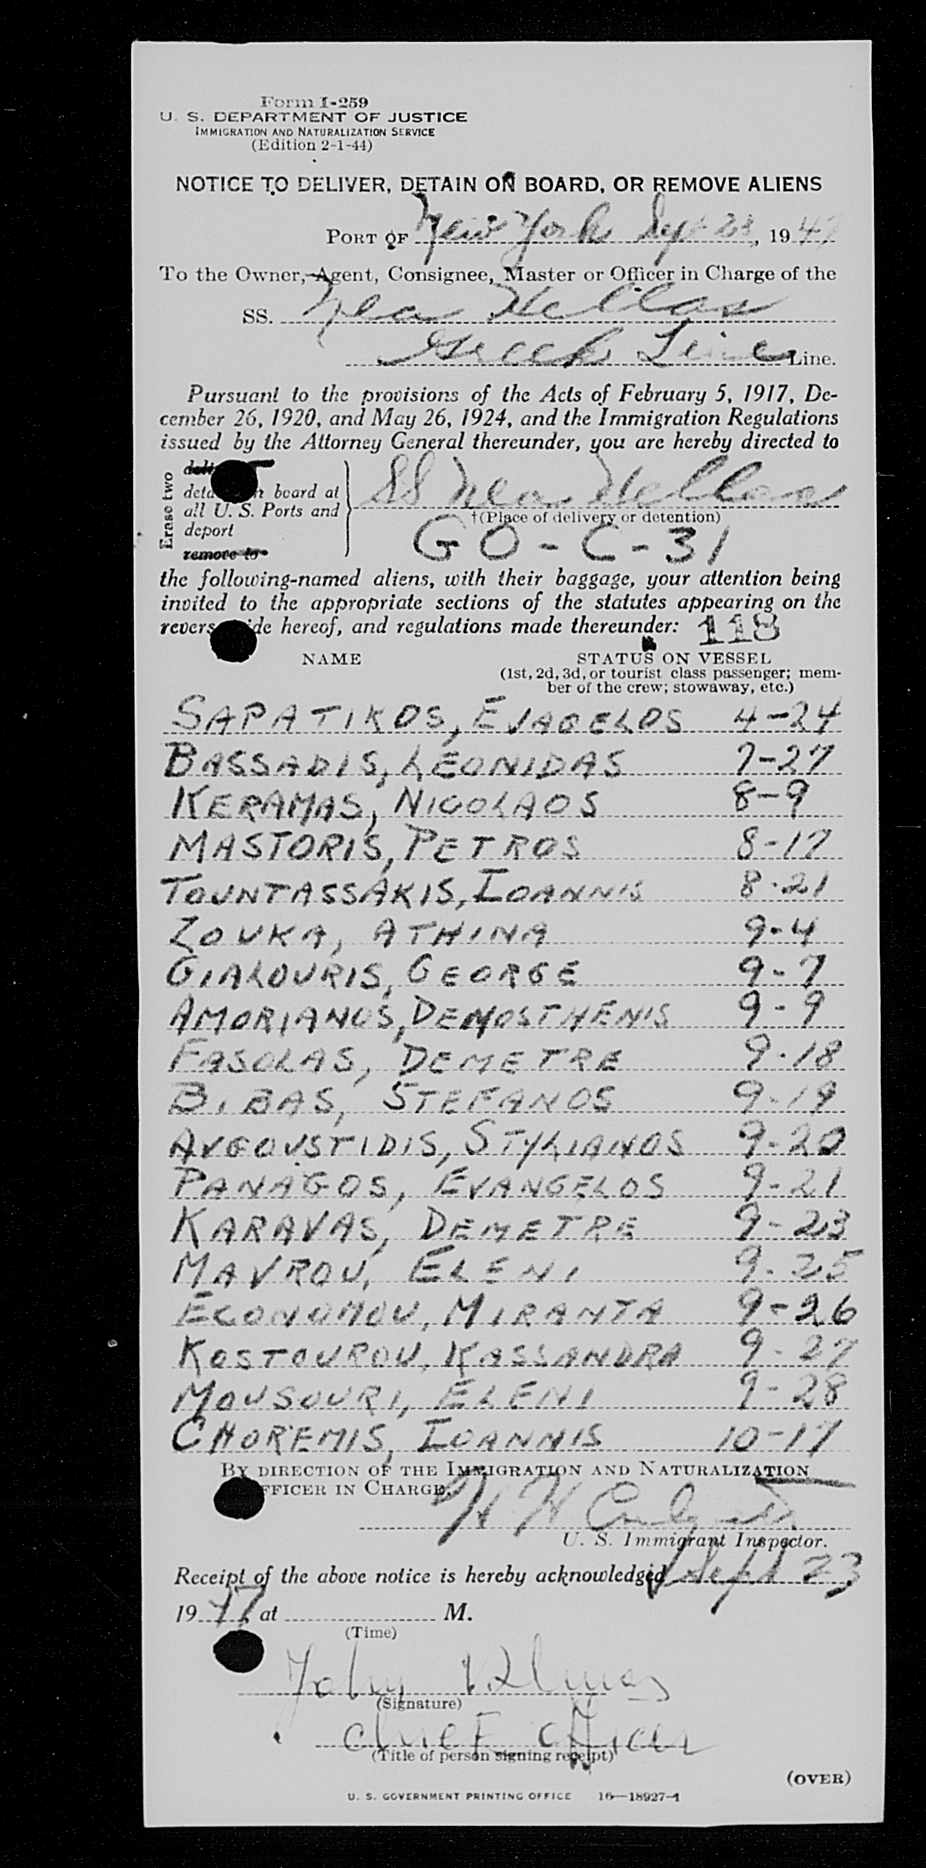 Form I-259
U. S. DEPARTMENT OF JUSTICE
IMMIGRATION AND NATURALIZATION SERVICE
(Edition 2-1-44)
NOTICE TO DELIVER, DETAIN ON BOARD, OR REMOVE ALIENS
PORT OF New York Sept 23, 1947
To the Owner, Agent, Consignee, Master or Officer in Charge of the
SS. Nea Hellas
Greek Line Line.
Pursuant to the provisions of the Acts of February 5, 1917, De-
cember 26, 1920, and May 26, 1924, and the Immigration Regulations
issued by the Attorney General thereunder, you are hereby directed to
Erase two
board at
all U. S. Ports and
deport
remove to
SS Nea Hellas
†(Place of delivery or detention)
GO-C-31
the following-named aliens, with their baggage, your attention being
invited to the appropriate sections of the statutes appearing on the
reverse side hereof, and regulations made thereunder: 118
NAME STATUS ON VESSEL
(1st, 2d, 3d, or tourist class passenger; mem-
ber of the crew; stowaway, etc.)
SAPATIKOS, EVAGELOS 4-24
BASSADIS, LEONIDAS 7-27
KERAMAS, NICOLAOS 8-9
MASTORIS, PETROS 8-17
TOUNTASSAKIS, IOANNIS 8-21
ZOUKA, ATHINA 9-4
GIALOURIS, GEORGE 9-7
AMORIANOS, DEMOSTHENIS 9-9
FASOLAS, DEMETRE 9-18
BIBAS, STEFANOS 9-19
AVGOUSTIDIS, STYLIANOS 9-20
PANAGOS, EVANGELOS 9-21
KARAVAS, DEMETRE 9-23
MAVROU, ELENI 9-25
ECONOMOU, MIRANTA 9-26
KOSTOUROU, KASSANDRA 9-27
MOUSOURI, ELENI 9-28
CHOREMIS, IOANNIS 10-17
BY DIRECTION OF THE IMMIGRATION AND NATURALIZATION
OFFICER IN CHARGE.
H H
U. S. Immigrant Inspector.
Receipt of the above notice is hereby acknowledged Sept 23
1947 at M.
(Time)
(Signature)
Chief Officer
(Title of person signing receipt)
(OVER)
U. S. GOVERNMENT PRINTING OFFICE 16—18927-1